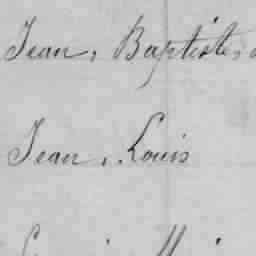 Jean, Baptiste,
Jean, Louis